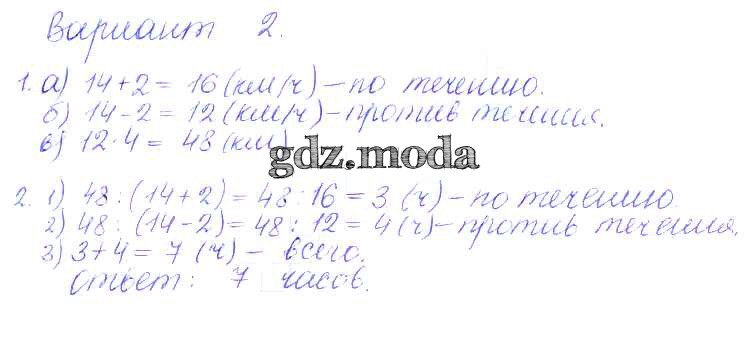 Вариант 2.
1. а) 14+2= 16 (км/ч) – по течению.
б) 14-2= 12 (км/ч) – против течения.
в) 12·4= 48 (км)
gdz.moda
2. 1) 48:(14+2)=48:16=3 (ч) – по течению.
2) 48:(14-2)=48:12=4(ч) – против течения.
3) 3+4= 7 (ч) – всего.
Ответ: 7 часов.